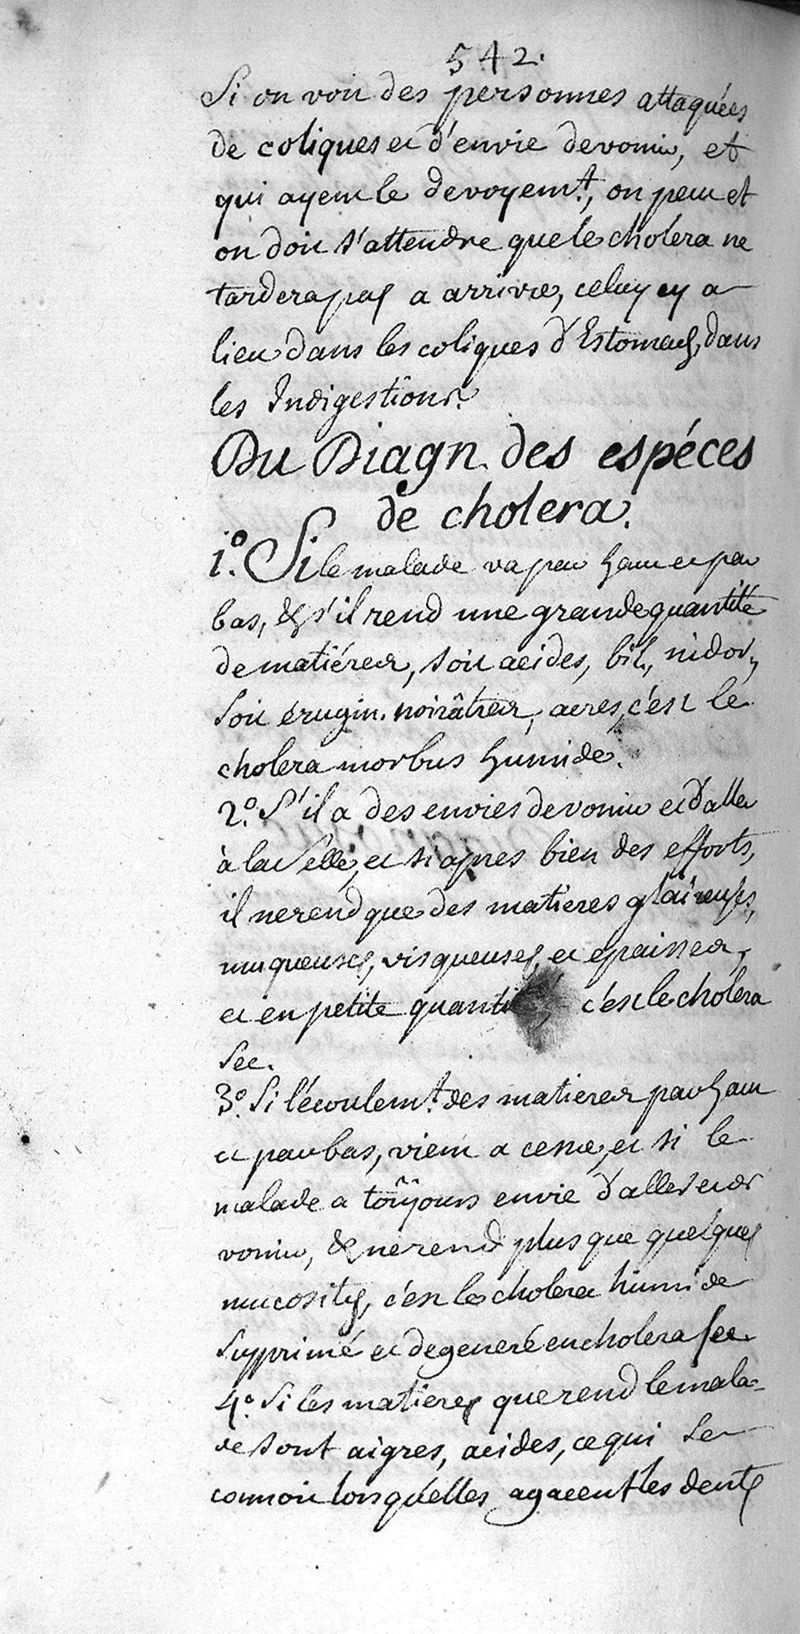 542.
Si on voit des personnes attaquées
de coliques et d'envie de vomir, et
qui ayent le devoyemt., on peut et
on doit s'attendre que le cholera ne
tardera pas a arriver, celuy cy a
lieu dans les coliques d'Estomach, dans
les Indigestions.
Du Diagn. des espéces
de cholera.
1.° Si le malade va par haut et par
bas, & s'il rend une grande quantité
de matiéres, soit acides, bil., nidor.,
soit érugin. noirâtres, acres, c'est le
cholera morbus humide.
2.° S'il a des envies de vomir et d'aller
à la selle, et si apres bien des efforts,
il ne rend que des matieres glaireuses,
muqueuses, visqueuses, et epaisses,
et en petite quantité, c'est le cholera
sec.
3.° Si l'écoulemt. des matieres par haut
et par bas, vient a cesser, et si le
malade a toûjours envie d'aller et de
vomir, & ne rend plus que quelques
mucosités, c'est le cholera humide
supprimé et degeneré en cholera sec.
4.° Si les matieres que rend le mala-
de sont aigres, acides, ce qui se
connoit lorsqu'elles agacent les dents